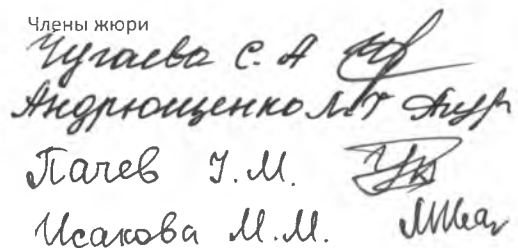 Члены жюри
Чугаева С. А
Андрющенко
Пачев У. М.
Исакова М. М.